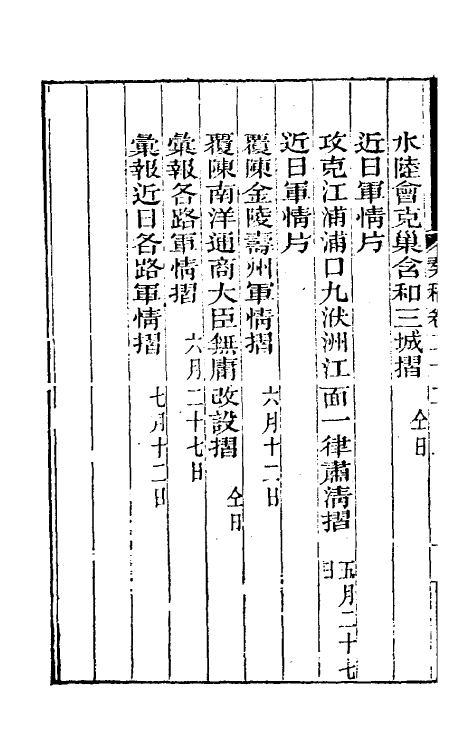 水陸會克巢含和三城摺 仝日
近日軍情片
攻克江浦浦口九洑洲江面一律肅淸摺 五月二十七日
近日軍情片
覆陳金陵壽州軍情摺 六月十二日
覆陳南洋通商大臣無庸改設摺 仝日
彙報各路軍情摺 六月二十七日
彙報近日各路軍情摺 七月十二日